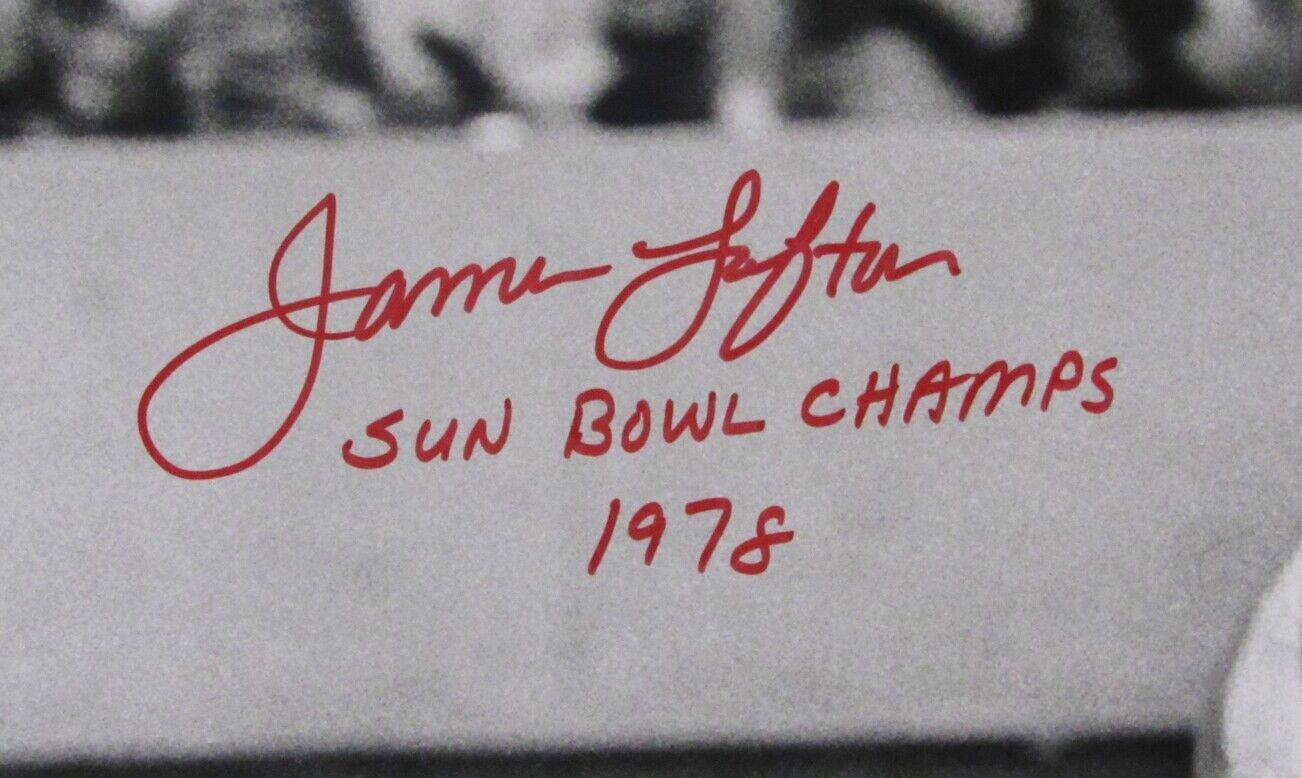 James Lofton
SUN BOWL CHAMPS
1978